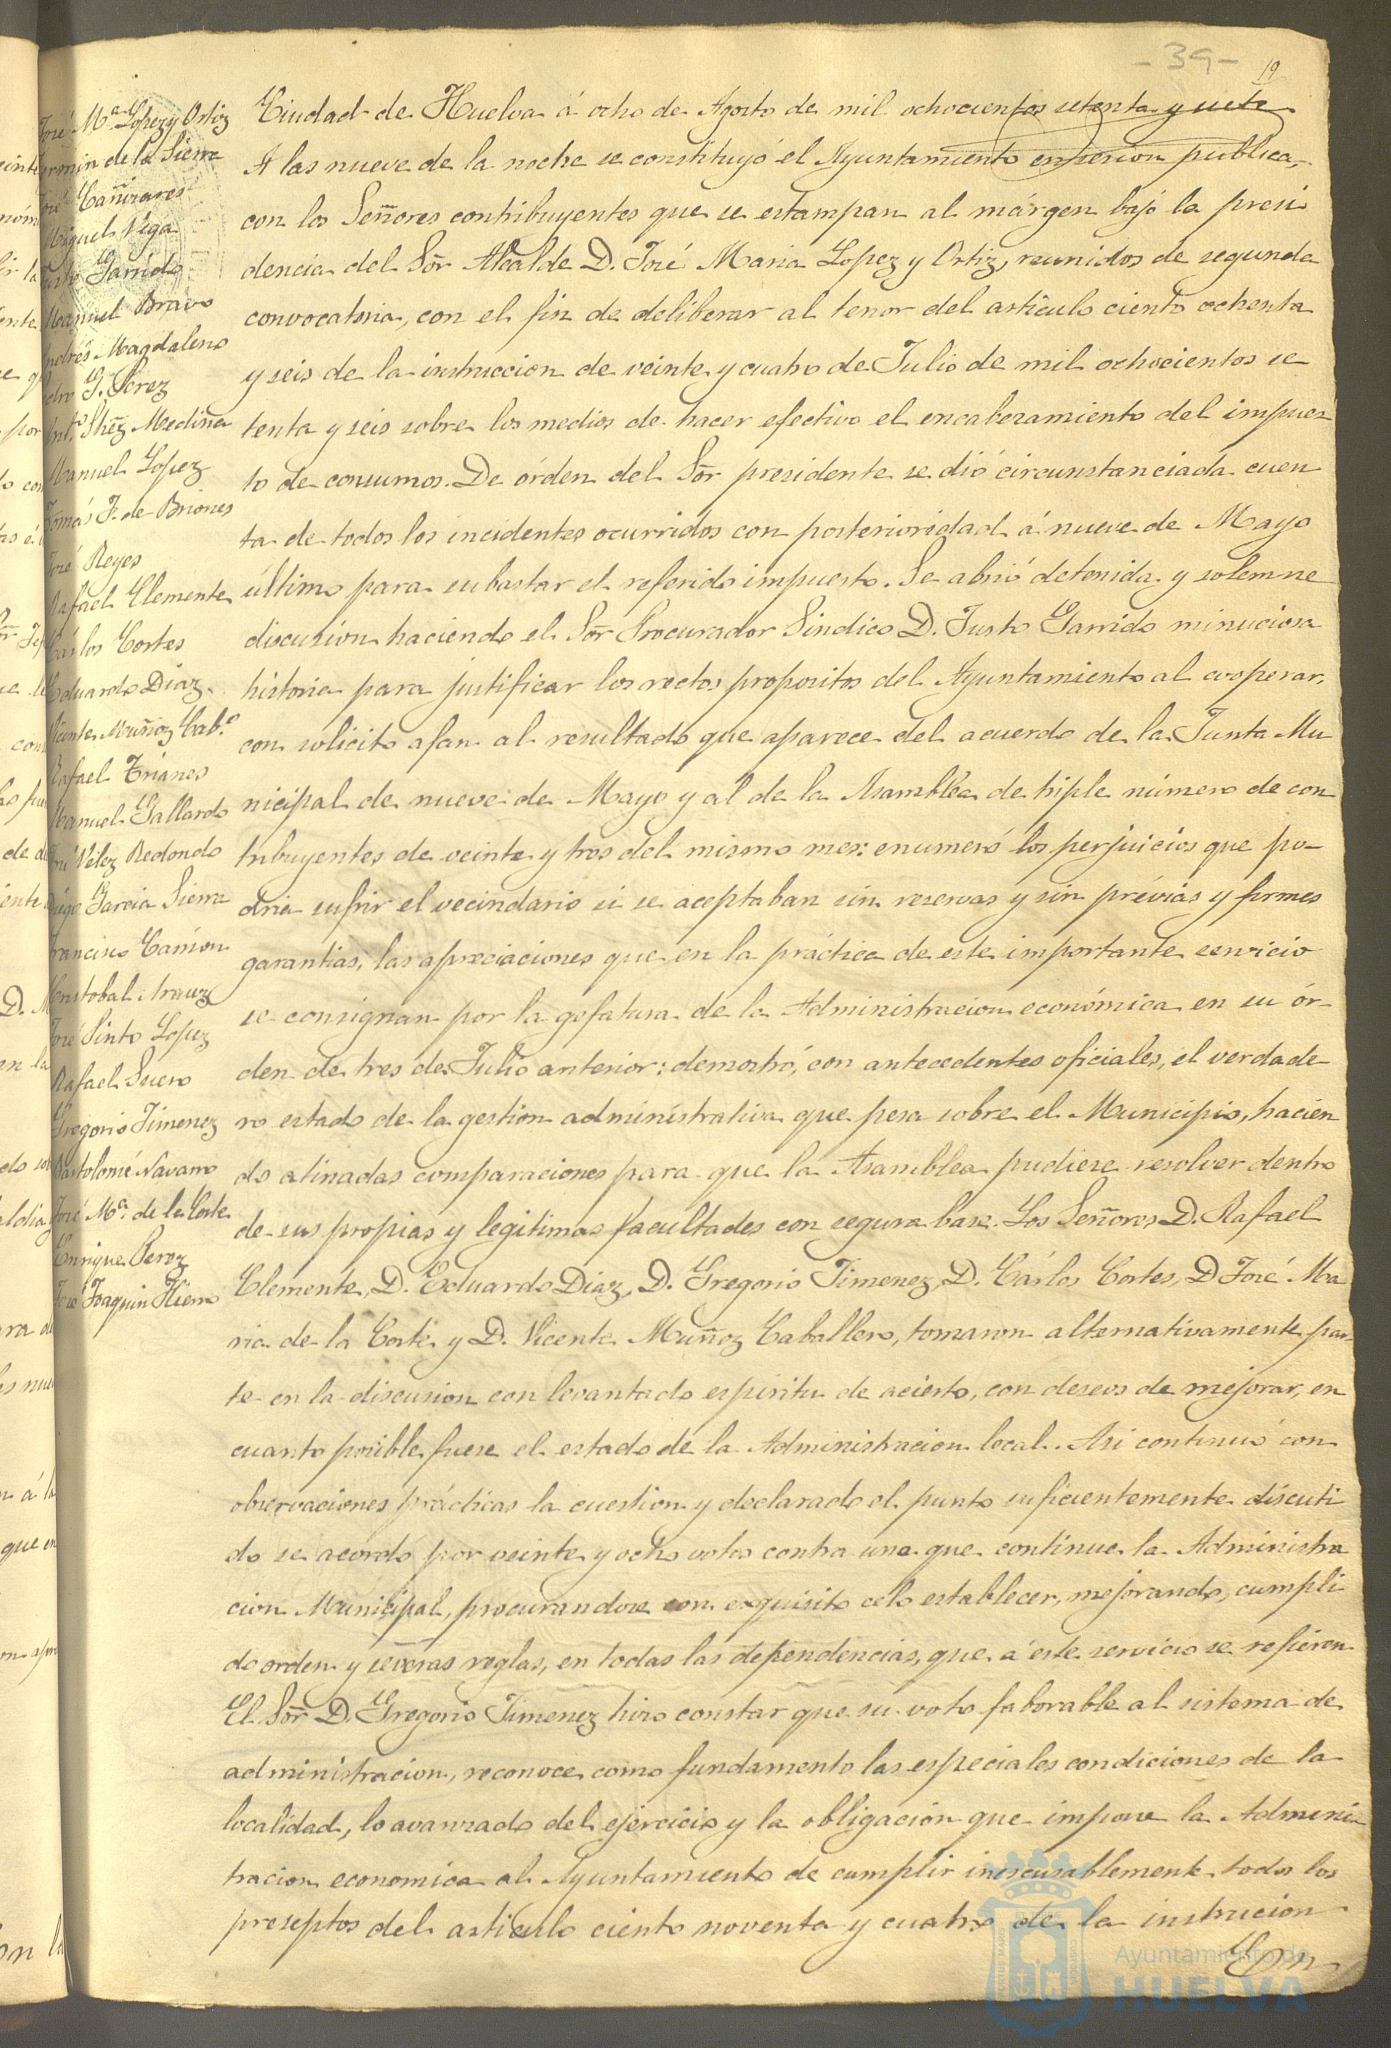 - 39 -
19
José Mª Lopez y Ortiz
Fermin de la Sierra
José Cañizares
Miguel Vega
Justo Garrido
Manuel Bravo
Andrés Magdaleno
Pedro G. Perez
Antº Shez Medina
Manuel Lopez
Tomás F. de Briones
José Reyes
Rafael Clemente
Cárlos Cortes
Eduardo Diaz
Vicente Muñoz Cabº
Rafael Trianes
Manuel Gallardo
José Velez Redondo
Diego Garcia Sierra
Francisco Carrion
Cristobal Arauz
José Pinto Lopez
Rafael Suero
Gregorio Jimenez
Bartolomé Navarro
José Mª de la Corte
Enrique Perez
José Joaquin Hierro
Ciudad de Huelva á ocho de Agosto de mil ochocientos setenta y siete
A las nueve de la noche se constituyó el Ayuntamiento en sesion pública,
con los Señores contribuyentes que se estampan al márgen bajo la presi
dencia del Sõr Alcalde D. José Maria Lopez y Ortiz, reunidos de segunda
convocatoria, con el fin de deliberar al tenor del artículo ciento ochenta
y seis de la instruccion de veinte y cuatro de Julio de mil ochocientos se
tenta y seis sobre los medios de hacer efectivo el encabezamiento del impues
to de consumos. De órden del Sõr presidente se dió circunstanciada cuen
ta de todos los incidentes ocurridos con posterioridad á nueve de Mayo
último para subastar el referido impuesto. Se abrió detenida y solemne
discusion haciendo el Sõr Procurador Sindico D. Justo Garrido minuciosa
historia para justificar los rectos propositos del Ayuntamiento al cooperar,
con solicito afan al resultado que aparece del acuerdo de la Junta Mu
nicipal de nueve de Mayo y al de la Asamblea de triple número de con
tribuyentes de veinte y tres del mismo mes: enumeró los perjuicios que po-
dria sufrir el vecindario si se aceptaban sin reservas y sin prévias y firmes
garantias, las apreciaciones que en la práctica de este importante servicio
se consignan por la gefatura de la Administracion económica en su ór-
den de tres de Julio anterior: demostró, con antecedentes oficiales, el verdade-
ro estado de la gestion administrativa que pesa sobre el Municipio, hacien
do atinadas comparaciones para que la Asamblea pudiese resolver dentro
de sus propias y legitimas facultades con segura base. Los Señores D. Rafael
Clemente, D. Eduardo Diaz, D. Gregorio Jimenez, D. Cárlos Cortes, D José Ma
ria de la Corte y D. Vicente Muñoz Caballero, tomaron alternativamente par-
te en la discusion con levantado espiritu de acierto, con deseos de mejorar, en
cuanto posible fuese el estado de la Administracion local. Asi continuó con
observaciones prácticas la cuestion y declarado el punto suficientemente discuti
do se acordó por veinte y ocho votos contra uno que continue la Administra
cion Municipal, procurandose con exquisito celo establecer, mejorando, cumpli
do orden y severas reglas, en todas las dependencias, que á este servicio se refieren
El Sõr D. Gregorio Jimenez hizo constar que su voto faborable al sistema de
administracion, reconoce como fundamento las especiales condiciones de la
localidad, lo avanzado del ejercicio y la obligacion que impone la Adminis
tracion economica al Ayuntamiento de cumplir inescusablemente todos los
preseptos del articulo ciento noventa y cuatro de la instrucion
Ayuntamiento de
HUELVA